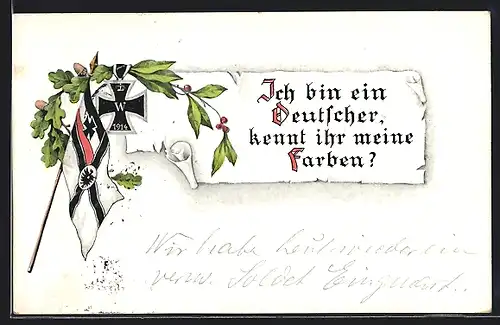 W
1914
Ich bin ein
Deutscher,
kennt ihr meine
Farben?
Wir habe heut wieder ein
verw. Soldat Einquart..